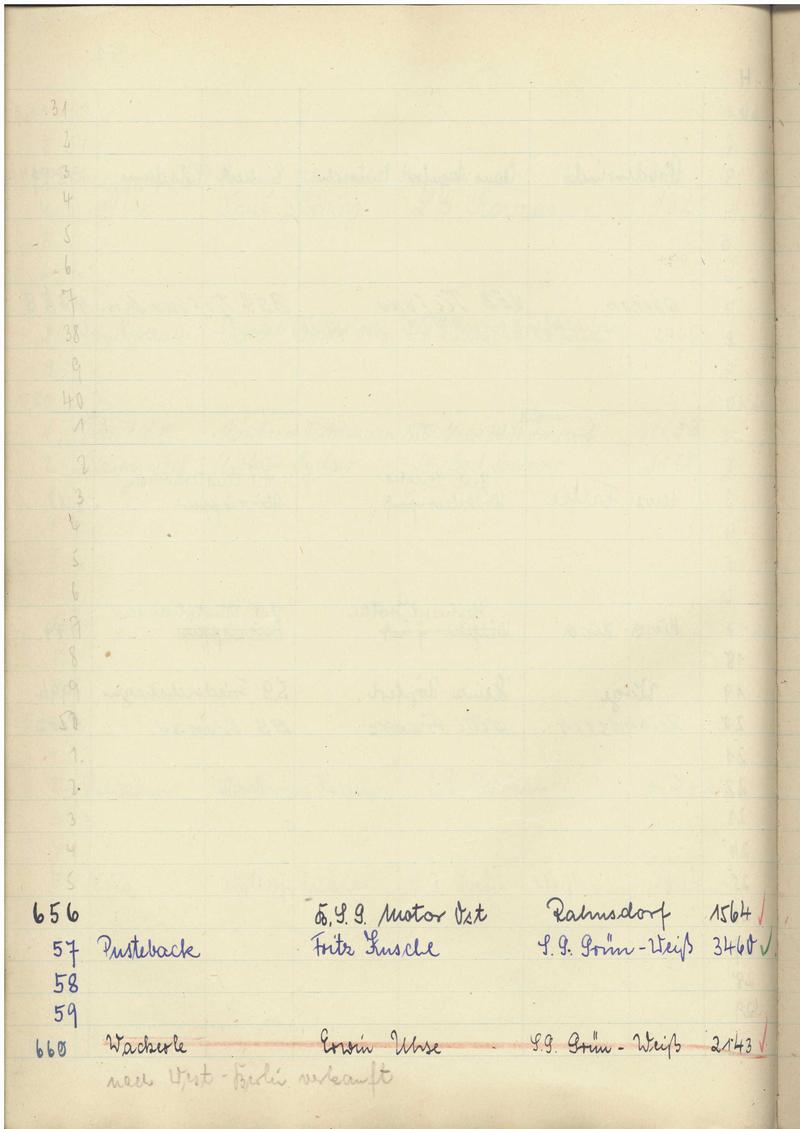 31
2
3
4
5
6
37
38
9
40
1
2
3
4
5
6
7
8
9
50
1
2
3
4
5
656 B.S.G. Motor Ost Rahnsdorf 1564 ✓
57 Pusteback Fritz Kusche S.G. Grün-Weiß 3460 ✓
58
59
660 Wackerle Erwin Uhse S.G. Grün-Weiß 2143 ✓
nach West-Berlin verkauft